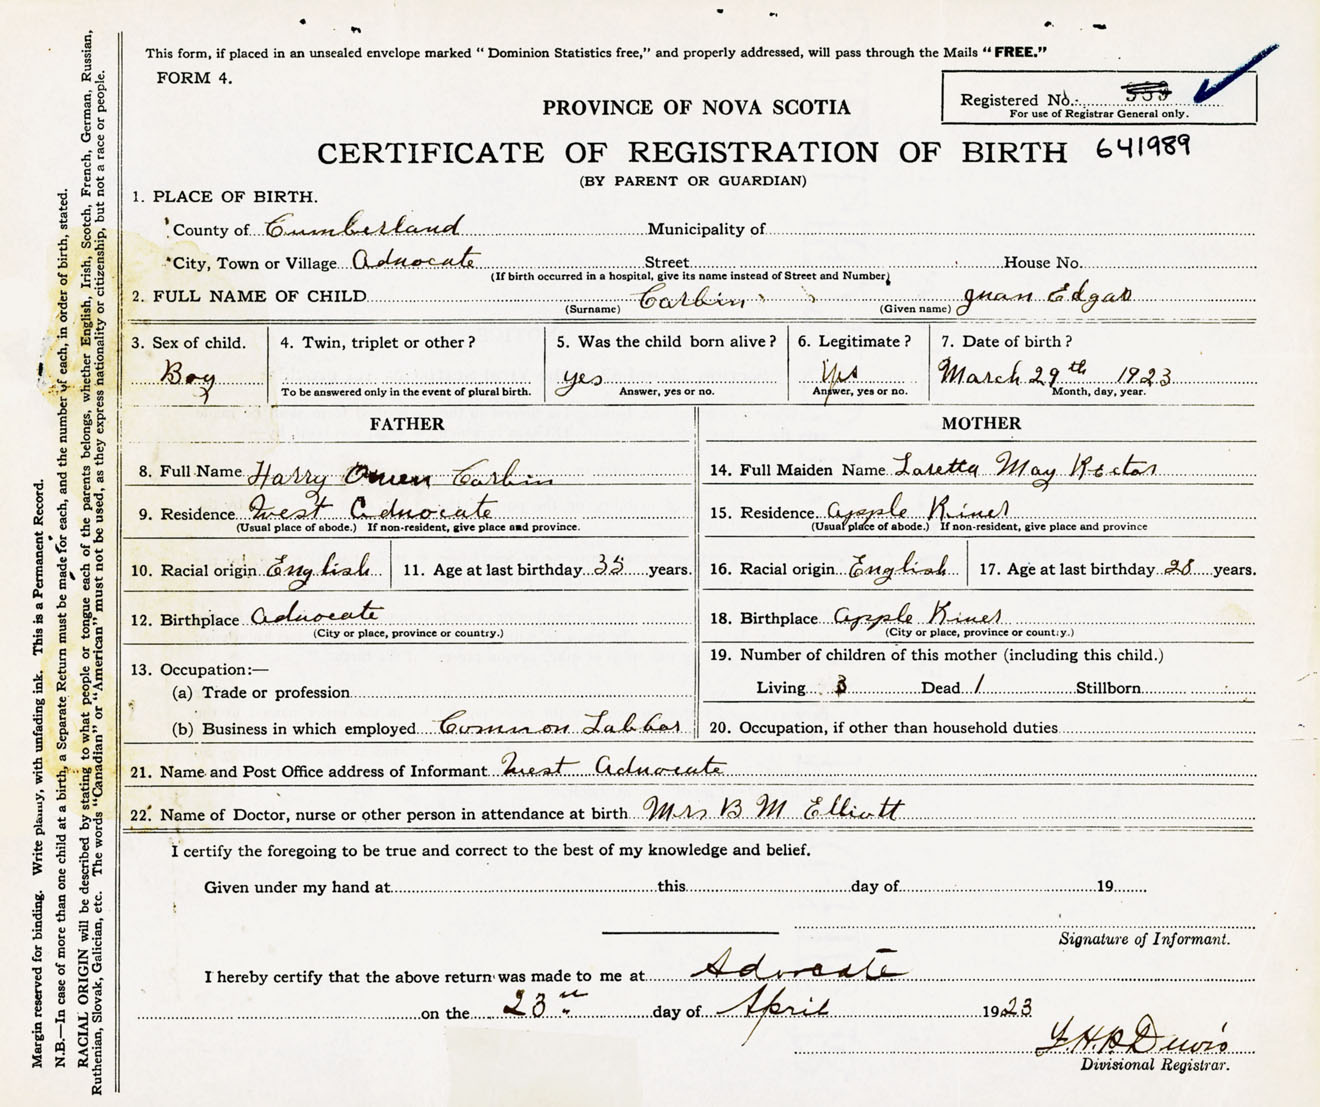 This form, if placed in an unsealed envelope marked “ Dominion Statistics free,” and properly addressed, will pass through the Mails “FREE.”
FORM 4.
Registered No.
For use of Registrar General only.
PROVINCE OF NOVA SCOTIA
CERTIFICATE OF REGISTRATION OF BIRTH 641989
(BY PARENT OR GUARDIAN)
1. PLACE OF BIRTH.
County of Cumberland Municipality of
City, Town or Village Advocate Street House No.
(If birth occurred in a hospital, give its name instead of Street and Number)
2. FULL NAME OF CHILD Corbin Edgar
(Surname) (Given name)
3. Sex of child. 4. Twin, triplet or other? 5. Was the child born alive? 6. Legitimate? 7. Date of birth?
Boy yes Yes March 29th 1923
To be answered only in the event of plural birth. Answer, yes or no. Answer, yes or no. Month, day, year.
FATHER MOTHER
8. Full Name Harry Owen Corbin 14. Full Maiden Name Loretta May Rector
9. Residence West Advocate 15. Residence Apple River
(Usual place of abode.) If non-resident, give place and province. (Usual place of abode.) If non-resident, give place and province
10. Racial origin English 11. Age at last birthday 35 years. 16. Racial origin English 17. Age at last birthday 28 years.
12. Birthplace Advocate 18. Birthplace Apple River
(City or place, province or country.) (City or place, province or country.)
19. Number of children of this mother (including this child.)
13. Occupation:—
(a) Trade or profession Living 3 Dead 1 Stillborn
(b) Business in which employed Common Labbor 20. Occupation, if other than household duties
21. Name and Post Office address of Informant West Advocate
22. Name of Doctor, nurse or other person in attendance at birth Mrs B M Elliott
I certify the foregoing to be true and correct to the best of my knowledge and belief.
Given under my hand at this day of 19
Signature of Informant.
I hereby certify that the above return was made to me at Advocate
on the 23rd day of April 1923
Dewis
Divisional Registrar.
Margin reserved for binding. Write plainly, with unfading ink. This is a Permanent Record.
N.B.—In case of more than one child at a birth, a Separate Return must be made for each, and the number of each, in order of birth, stated.
RACIAL ORIGIN will be described by stating to what people or tongue each of the parents belongs, whether English, Irish, Scotch, French, German, Russian,
Ruthenian, Slovak, Galician, etc. The words “Canadian” or “American” must not be used, as they express nationality or citizenship, but not a race or people.